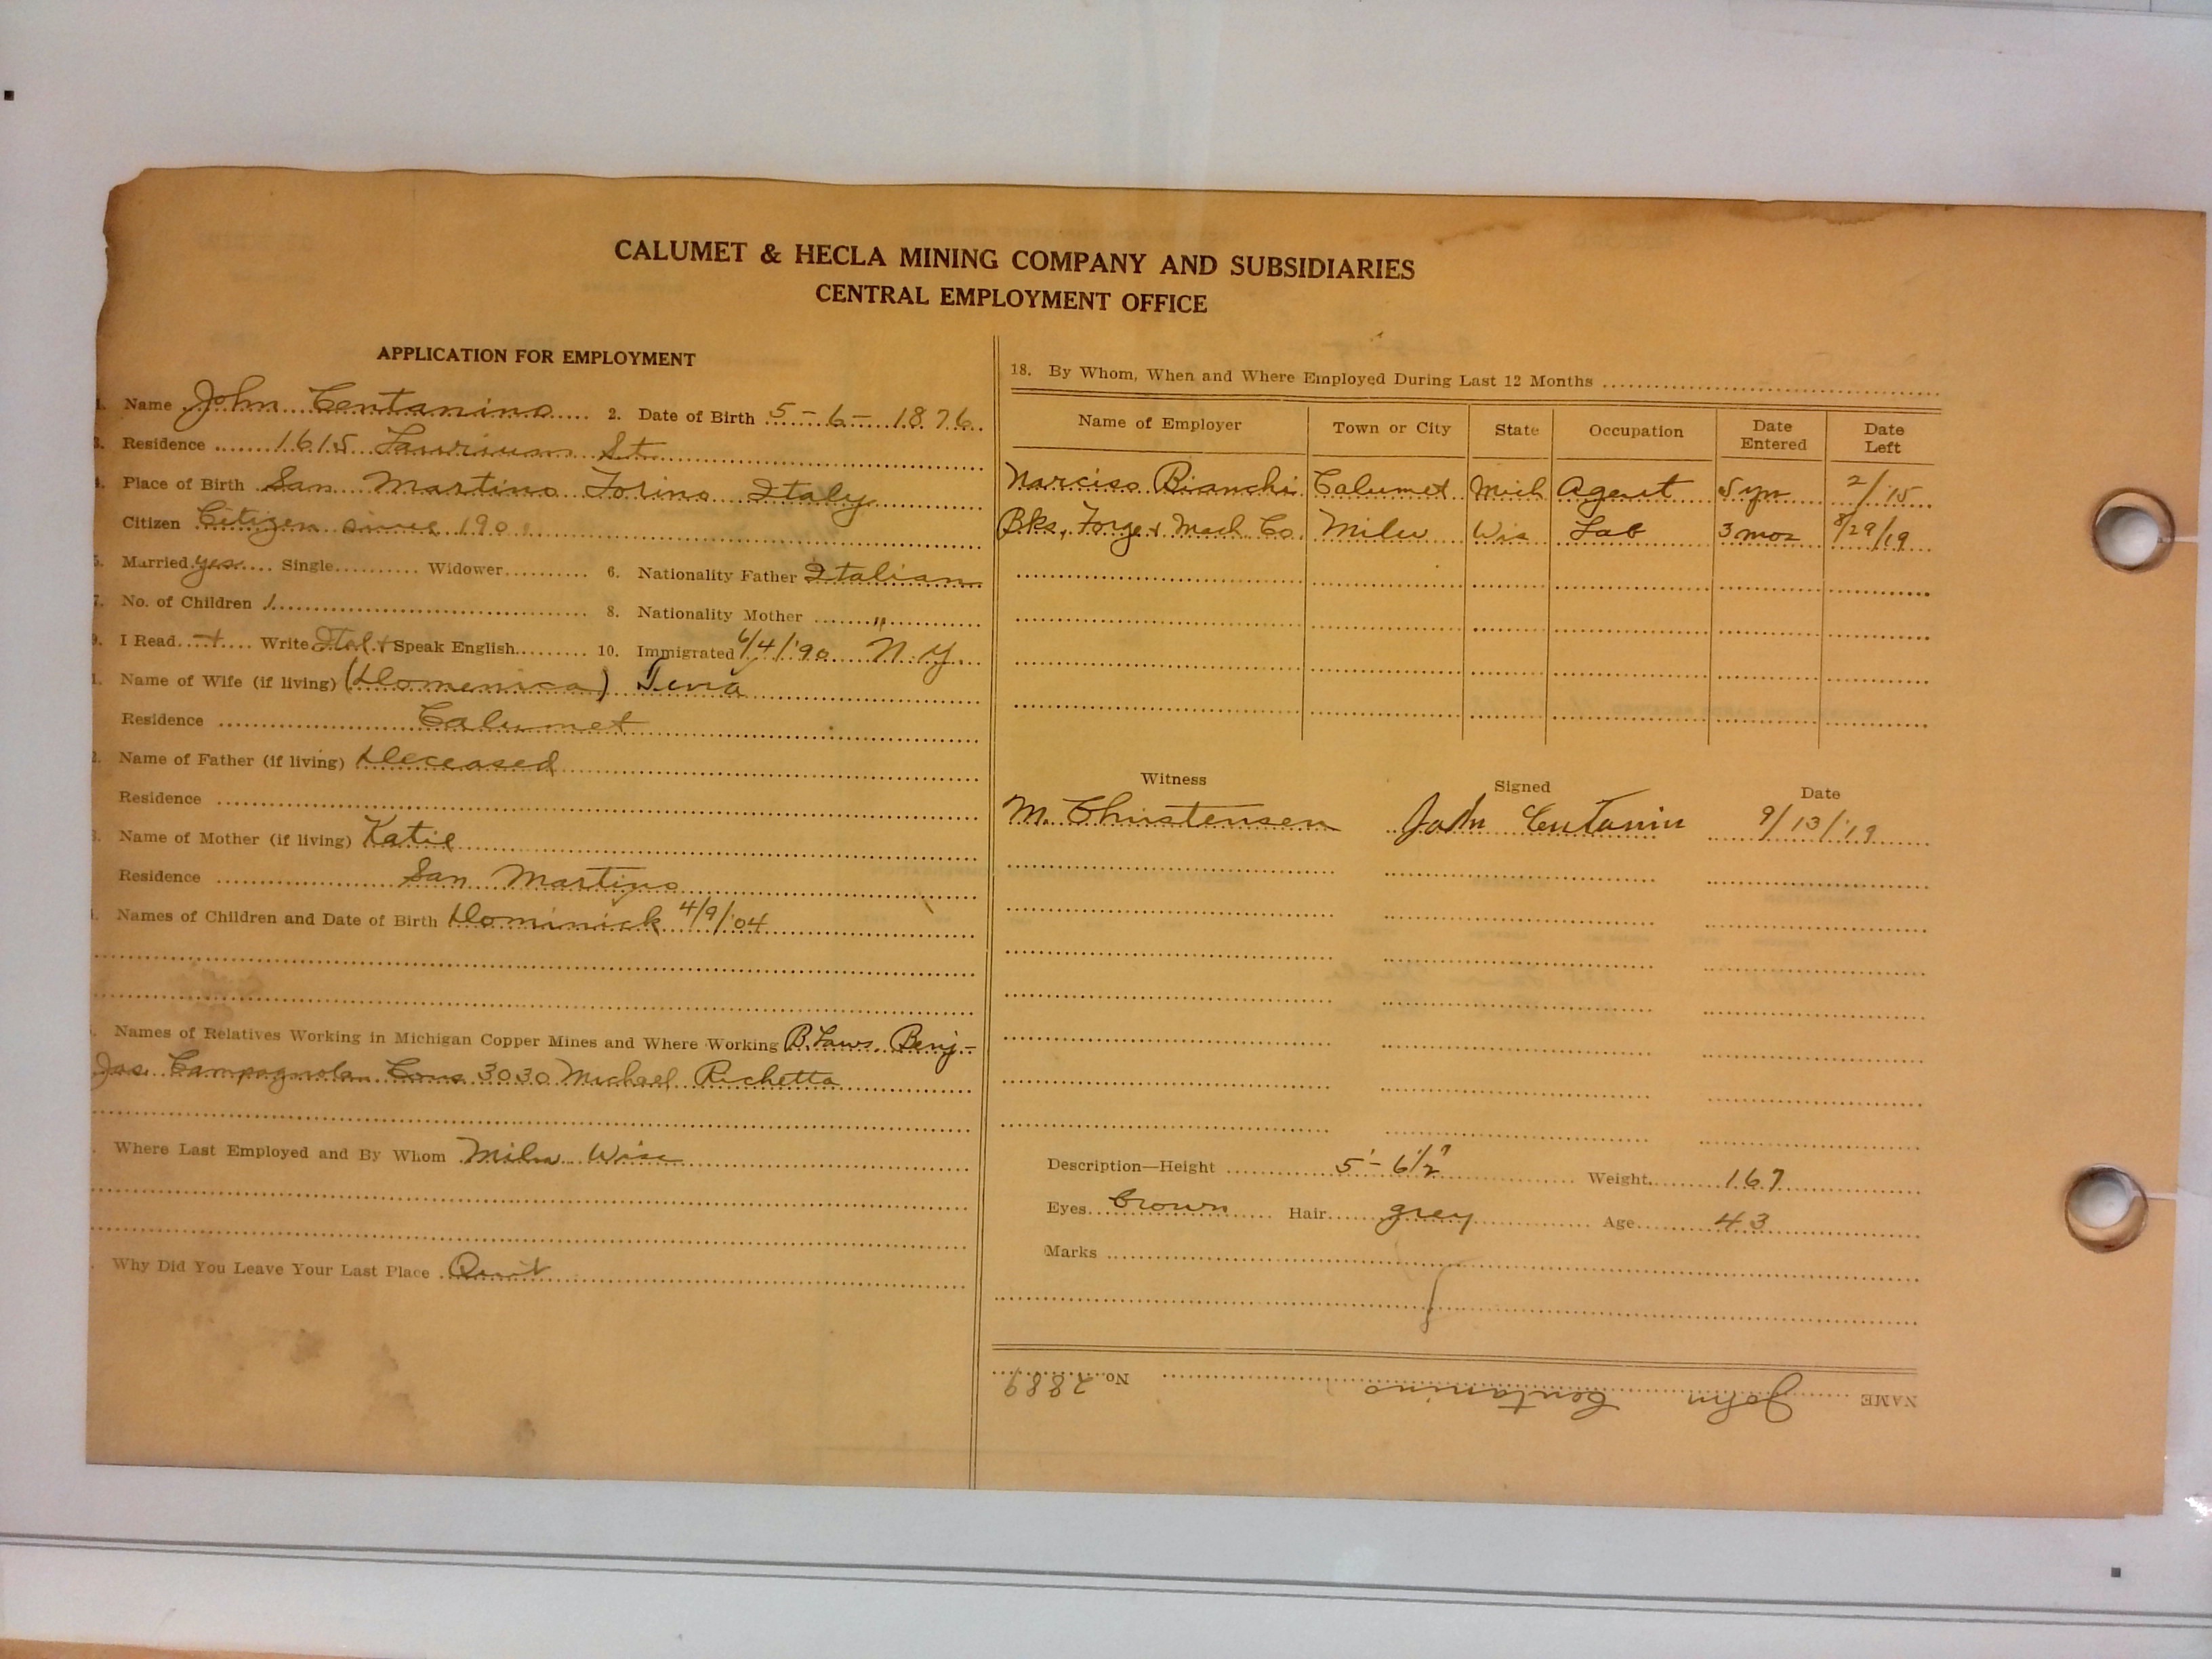 CALUMET & HECLA MINING COMPANY AND SUBSIDIARIES
CENTRAL EMPLOYMENT OFFICE
APPLICATION FOR EMPLOYMENT
1. Name John Centanino 2. Date of Birth 5-6-1876
3. Residence 1615 Laurium St.
4. Place of Birth San Martino Torino Italy
Citizen Citizen since 190
5. Married yes Single Widower 6. Nationality Father Italian
7. No. of Children 1 8. Nationality Mother "
9. I Read + Write Ital. + Speak English 10. Immigrated 6/4/'90 N.Y.
1. Name of Wife (if living) (Domenica)
Residence Calumet
2. Name of Father (if living) Deceased
Residence
3. Name of Mother (if living) Katie
Residence San Martino
4. Names of Children and Date of Birth Dominick 4/9/'04
Names of Relatives Working in Michigan Copper Mines and Where Working B. Laws. Benj-
Jas. Campagnola Cous 3030 Michael Richetta
Where Last Employed and By Whom Milw Wisc
Why Did You Leave Your Last Place Quit
18. By Whom, When and Where Employed During Last 12 Months
Name of Employer Town or City State Occupation Date Entered Date Left
Narciso Bianchi Calumet Mich Agent 5 yrs 2/'15
Bks, Forge + Mach Co. Milw Wis Lab 3 mos 8/29/19
Witness Signed Date
M. Christensen John Centanin 9/13/'19
Description—Height 5'-6 1/2" Weight 167
Eyes brown Hair grey Age 43
Marks
NAME John Centanino No. 2889